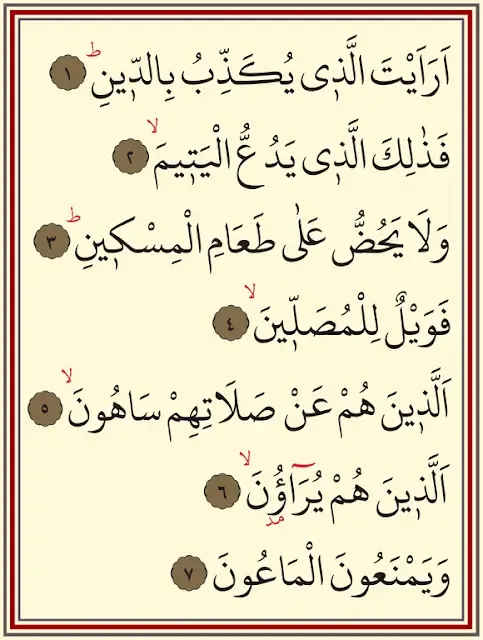 اَرَاَيْتَ الَّذٖى يُكَذِّبُ بِالدّٖينِ ؕ ١
فَذٰلِكَ الَّذٖى يَدُعُّ الْيَتٖيمَ ۙ ٢
وَلَا يَحُضُّ عَلٰى طَعَامِ الْمِسْكٖينِ ؕ ٣
فَوَيْلٌ لِلْمُصَلّٖينَ ۙ ٤
اَلَّذٖينَ هُمْ عَنْ صَلَاتِهِمْ سَاهُونَ ۙ ٥
اَلَّذٖينَ هُمْ يُرَٓاؤُ۫نَ ۙ ٦
مد
وَيَمْنَعُونَ الْمَاعُونَ ٧